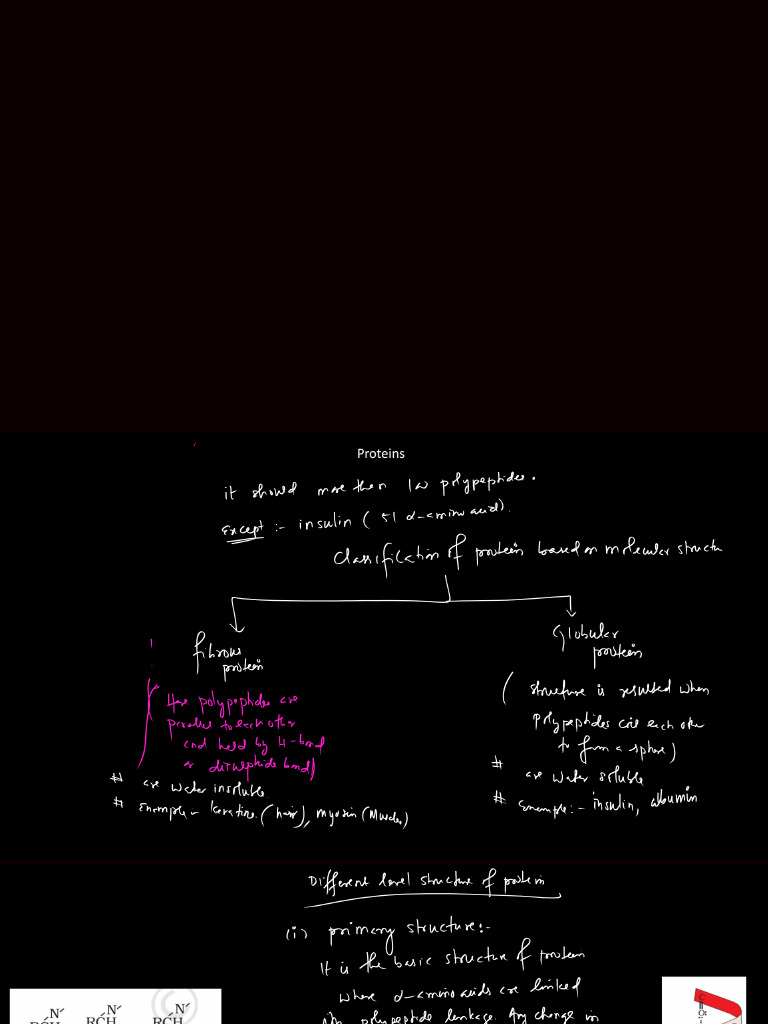 Proteins
it should more then 100 polypeptides.
Except :- insulin ( 51 α-amino acid).
Classification of protein based on molecular structu
fibrous
protein
Here polypeptides are
parallel to each other
and held by H-bond
or disulphide bond)
# are water insoluble
# Example - keratine (hair), myosin (Muscles)
Globular
protein
( structure is resulted when
polypeptides coil each other
to form a sphere)
# are water soluble
# Example:- insulin, albumin
Different level structure of protein
(i) primary structure:-
It is the basic structure of protein
where α-amino acids are linked
polypeptide linkage. Any change in
N
N
N
RCH
RCH
RCH
C
O